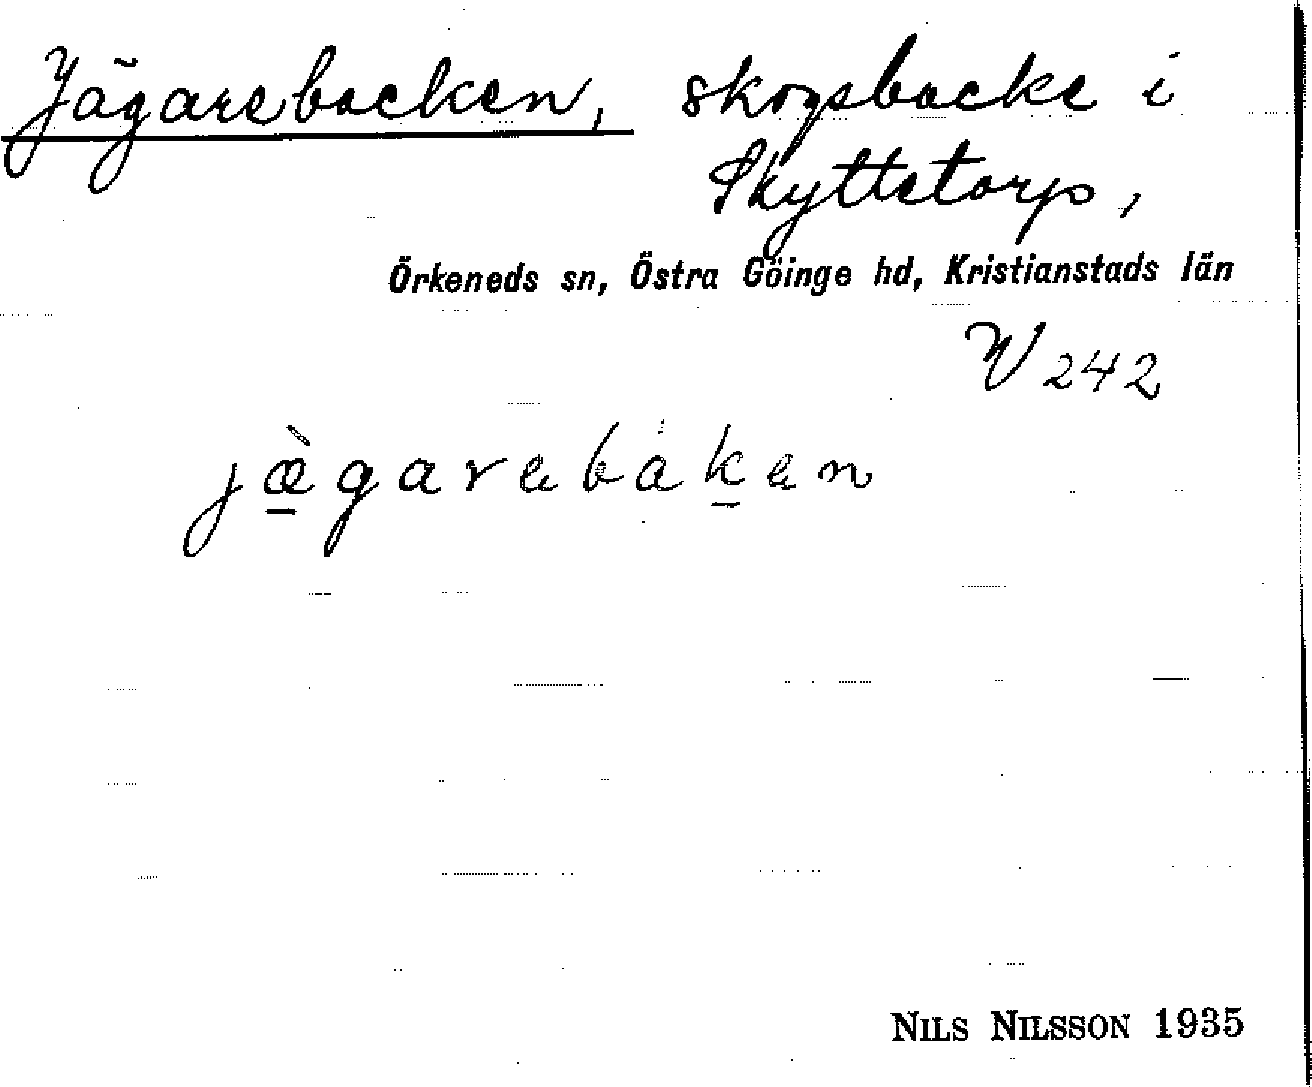 Jägarebacken, skogsbacke i
Skyttetorp,
Örkeneds sn, Östra Göinge hd, Kristianstads län
W 242
jæ̀garebáken
NILS NILSSON 1935